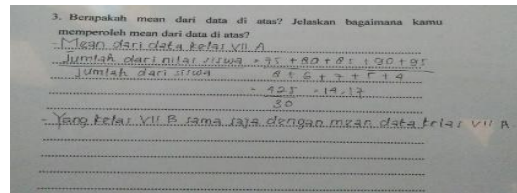 3. Berapakah mean dari data di atas? Jelaskan bagaimana kamu
memperoleh mean dari data di atas?
- Mean dari data kelas VII A
Jumlah dari nilai siswa = 75 + 80 + 85 + 90 + 95
Jumlah dari siswa 8 + 6 + 7 + 5 + 4
= 425 = 14,17
30
- Yang kelas VII B sama saja dengan mean data kelas VII A.